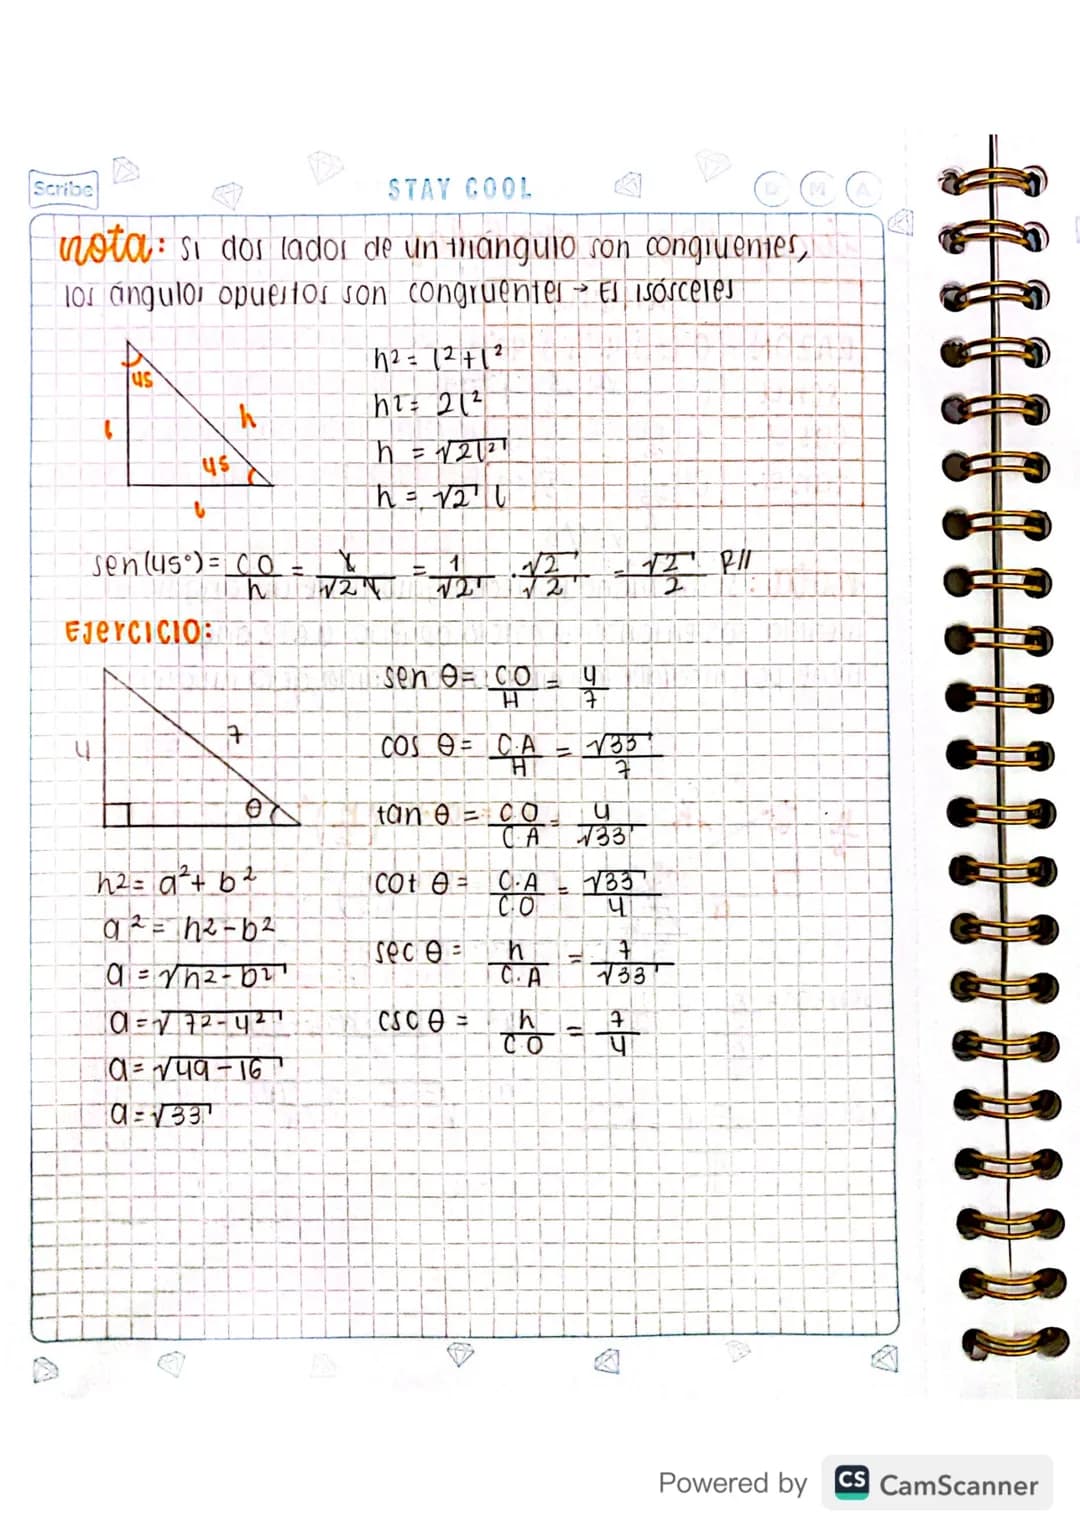 Scribe
STAY COOL
D M A
nota: si dos lados de un triángulo son congruentes,
los ángulos opuestos son congruentes → Es isósceles
45
l
h
45
l
h² = l² + l²
h² = 2l²
h = √2l²
h = √2 l
sen(45°) = CO/h = l/√2 l = 1/√2 · √2/√2 = √2/2 R//
EJercicio:
4
7
θ
sen θ = CO/H = 4/7
cos θ = C.A/H = √33/7
tan θ = CO/CA = 4/√33
cot θ = C.A/C.O = √33/4
sec θ = h/C.A = 7/√33
csc θ = h/CO = 7/4
h² = a² + b²
a² = h² - b²
a = √h² - b²
a = √7² - 4²
a = √49 - 16
a = √33
Powered by CS CamScanner